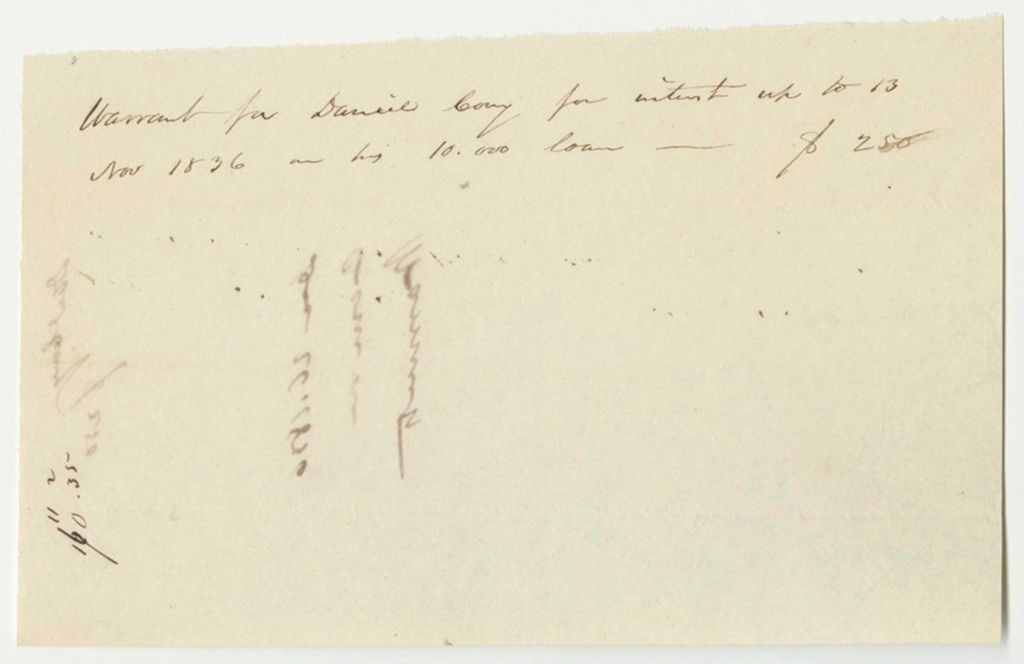 Warrant for Daniel Cony for interest up to 13
Nov 1836 on his 10.000 loan — $ 250
11 2
160.35